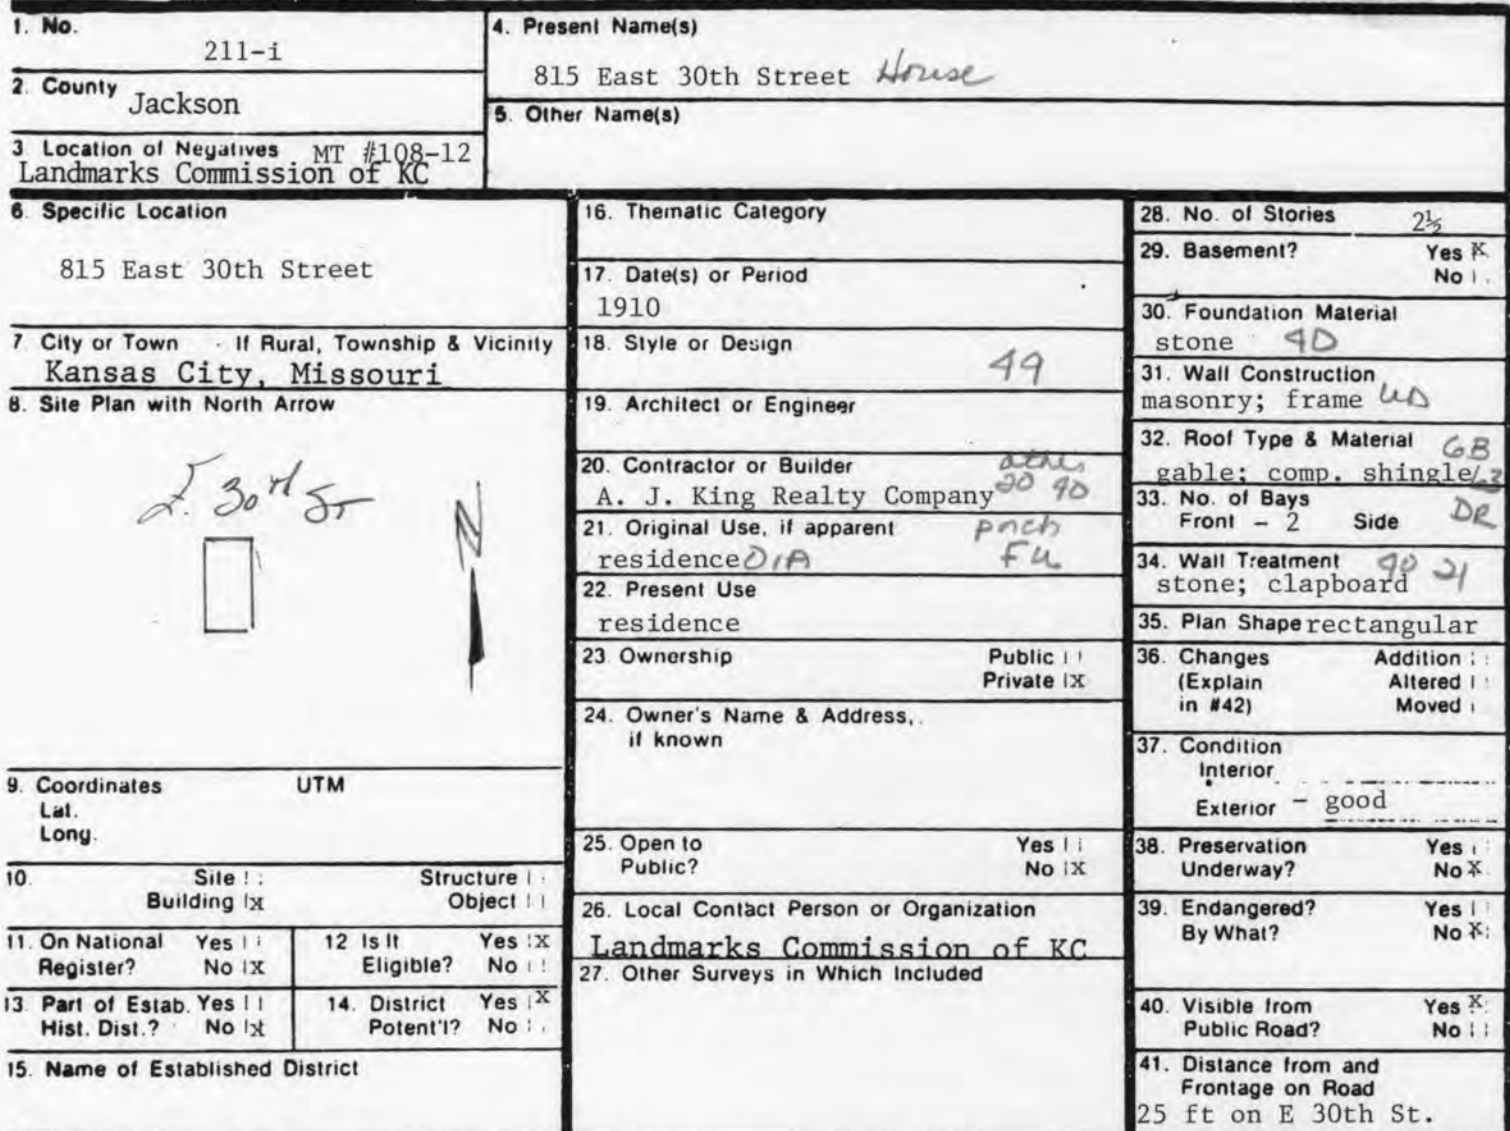 1. No.
211-i
2. County
Jackson
3. Location of Negatives MT #108-12
Landmarks Commission of KC
4. Present Name(s)
815 East 30th Street House
5. Other Name(s)
6. Specific Location
815 East 30th Street
7. City or Town If Rural, Township & Vicinity
Kansas City, Missouri
8. Site Plan with North Arrow
E. 30th St
N
9. Coordinates UTM
Lat.
Long.
10. Site Structure
Building X Object
11. On National Register? Yes No X
12 Is It Eligible? Yes X No
13. Part of Estab. Hist. Dist.? Yes No X
14. District Potent'l? Yes X No
15. Name of Established District
16. Thematic Category
17. Date(s) or Period
1910
18. Style or Design
49
19. Architect or Engineer
20. Contractor or Builder
A. J. King Realty Company 20 90
21. Original Use, if apparent porch
residence 01A FU
22. Present Use
residence
23 Ownership Public
Private X
24. Owner's Name & Address,
if known
25. Open to Yes
Public? No X
26. Local Contact Person or Organization
Landmarks Commission of KC
27. Other Surveys in Which Included
28. No. of Stories 2½
29. Basement? Yes X
No
30. Foundation Material
stone 40
31. Wall Construction
masonry; frame UD
32. Roof Type & Material GB
gable; comp. shingle 63
33. No. of Bays
Front - 2 Side DR
34. Wall Treatment 40 21
stone; clapboard
35. Plan Shape rectangular
36. Changes Addition
(Explain Altered
in #42) Moved
37. Condition
Interior
Exterior - good
38. Preservation Yes
Underway? No X
39. Endangered? Yes
By What? No X
40. Visible from Yes X
Public Road? No
41. Distance from and
Frontage on Road
25 ft on E 30th St.